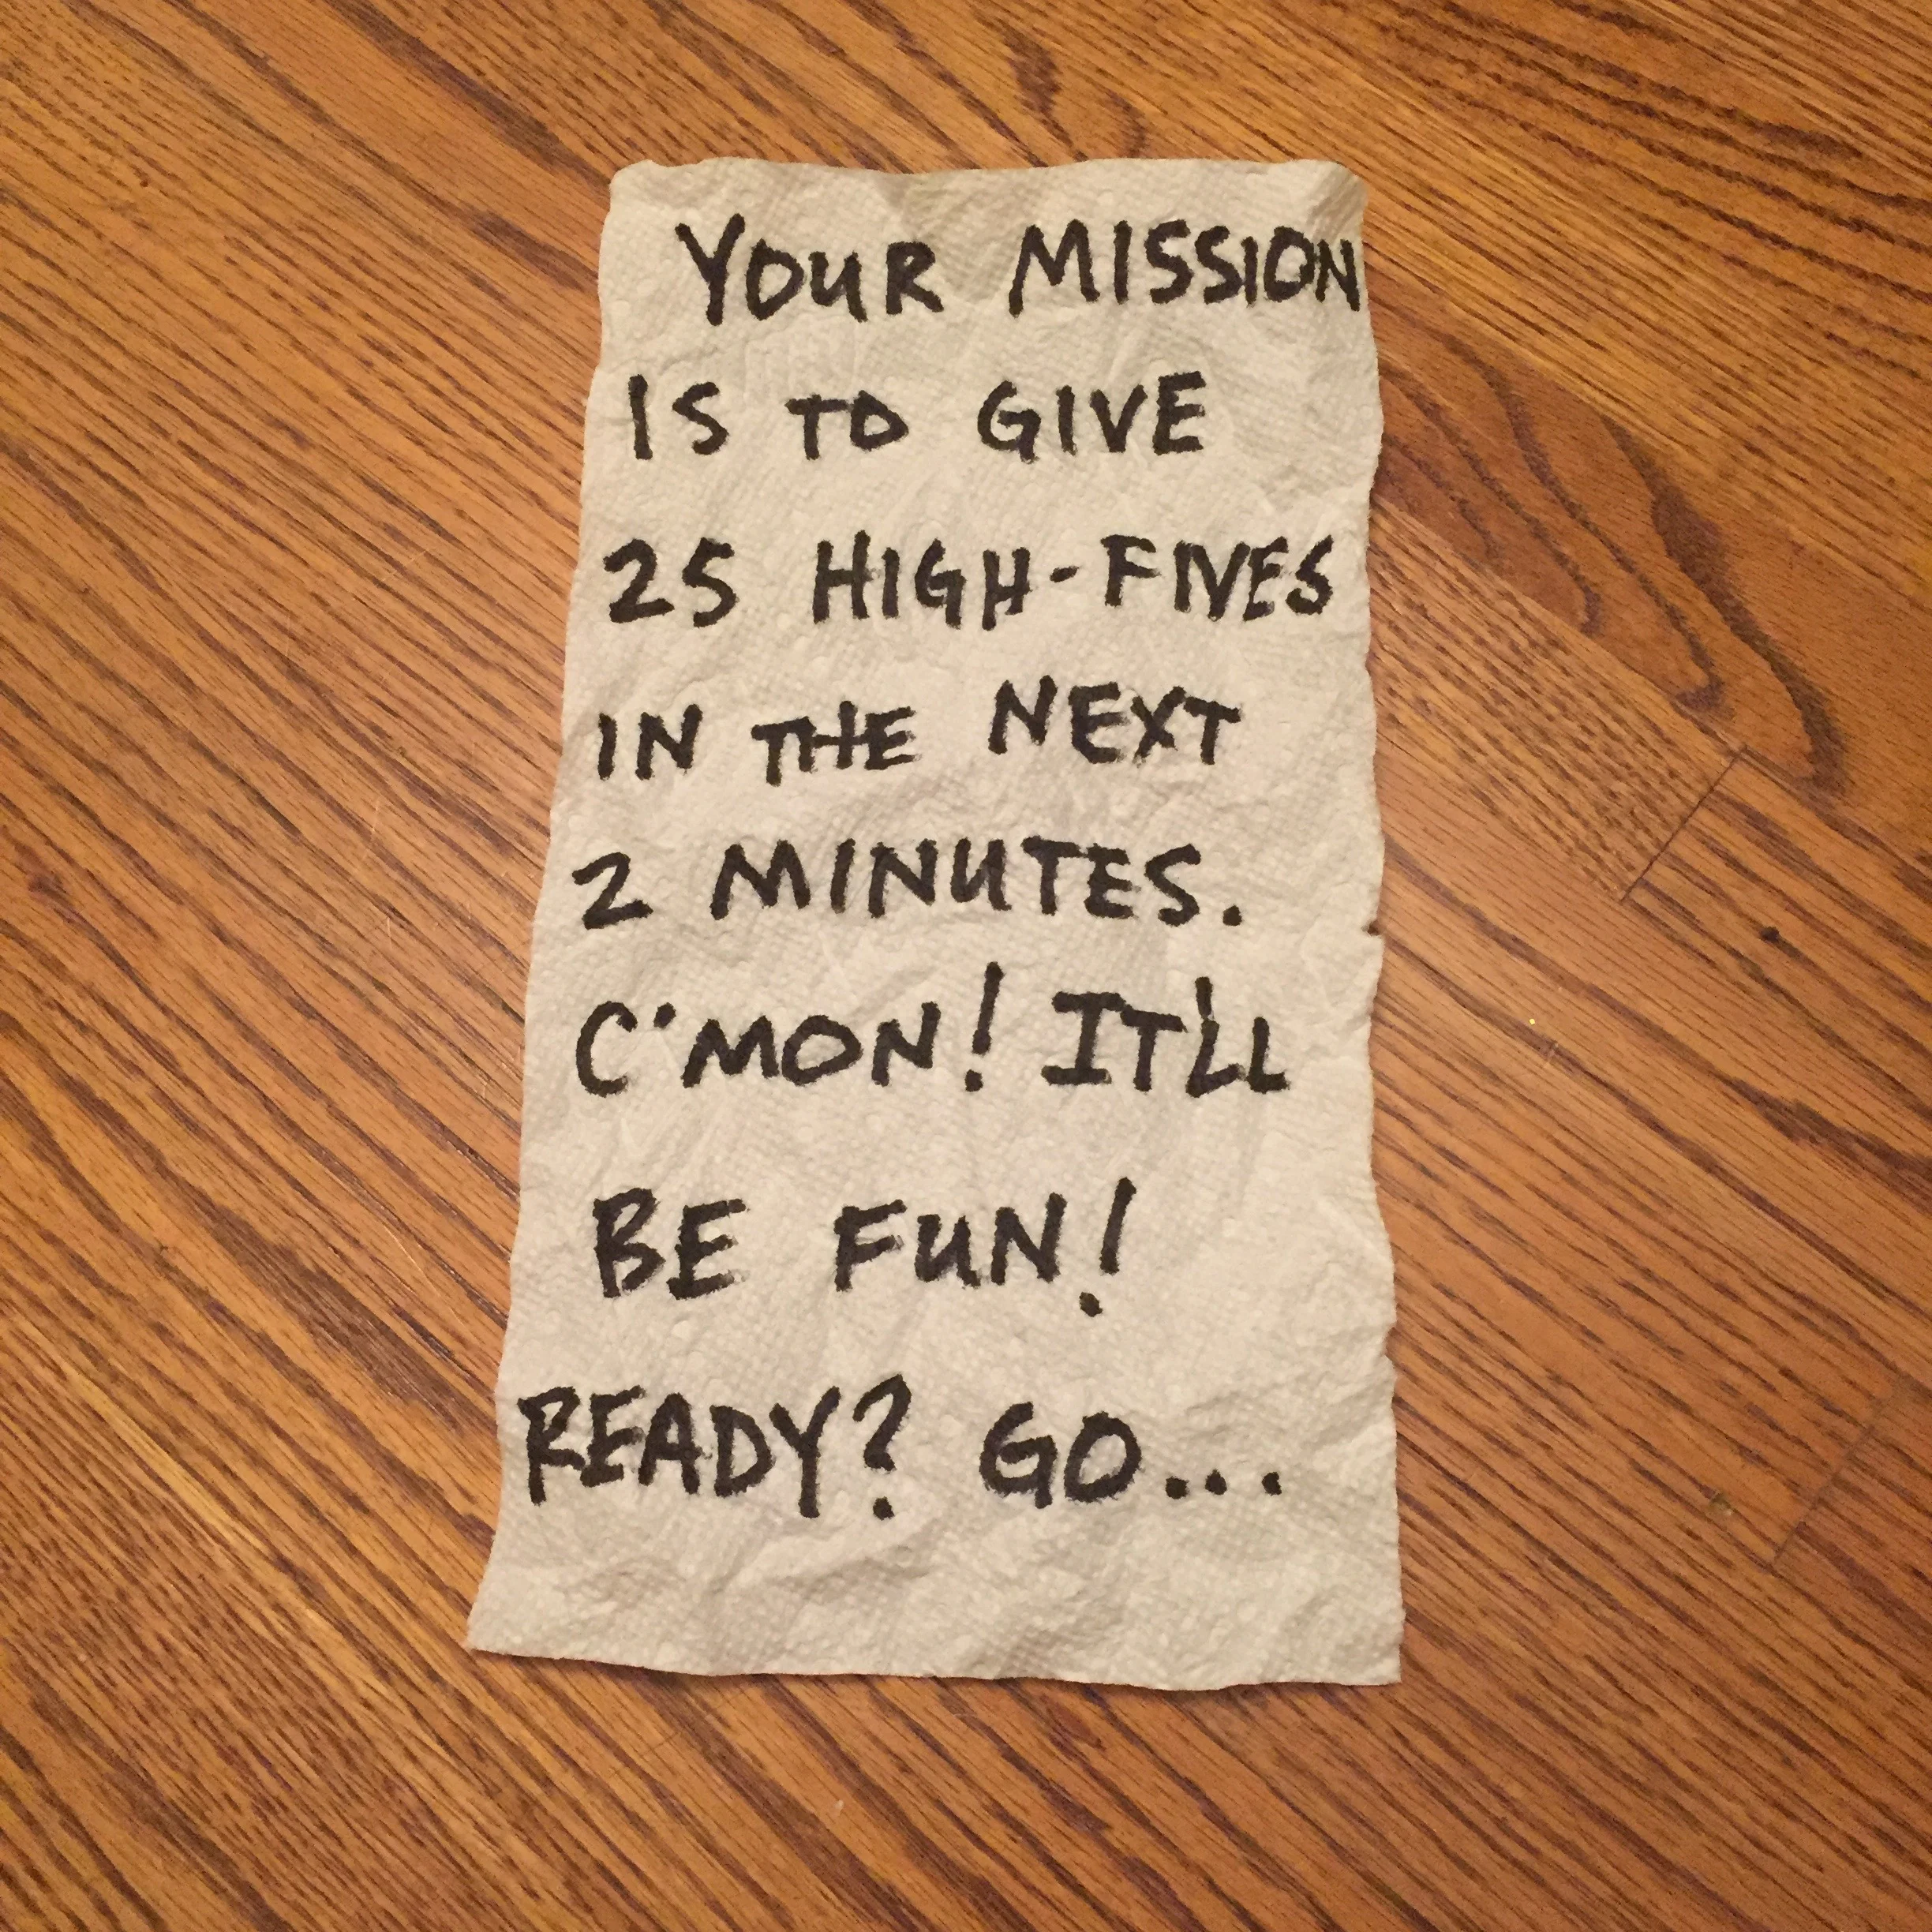 YOUR MISSION
IS TO GIVE
25 HIGH-FIVES
IN THE NEXT
2 MINUTES.
C'MON! IT'LL
BE FUN!
READY? GO...